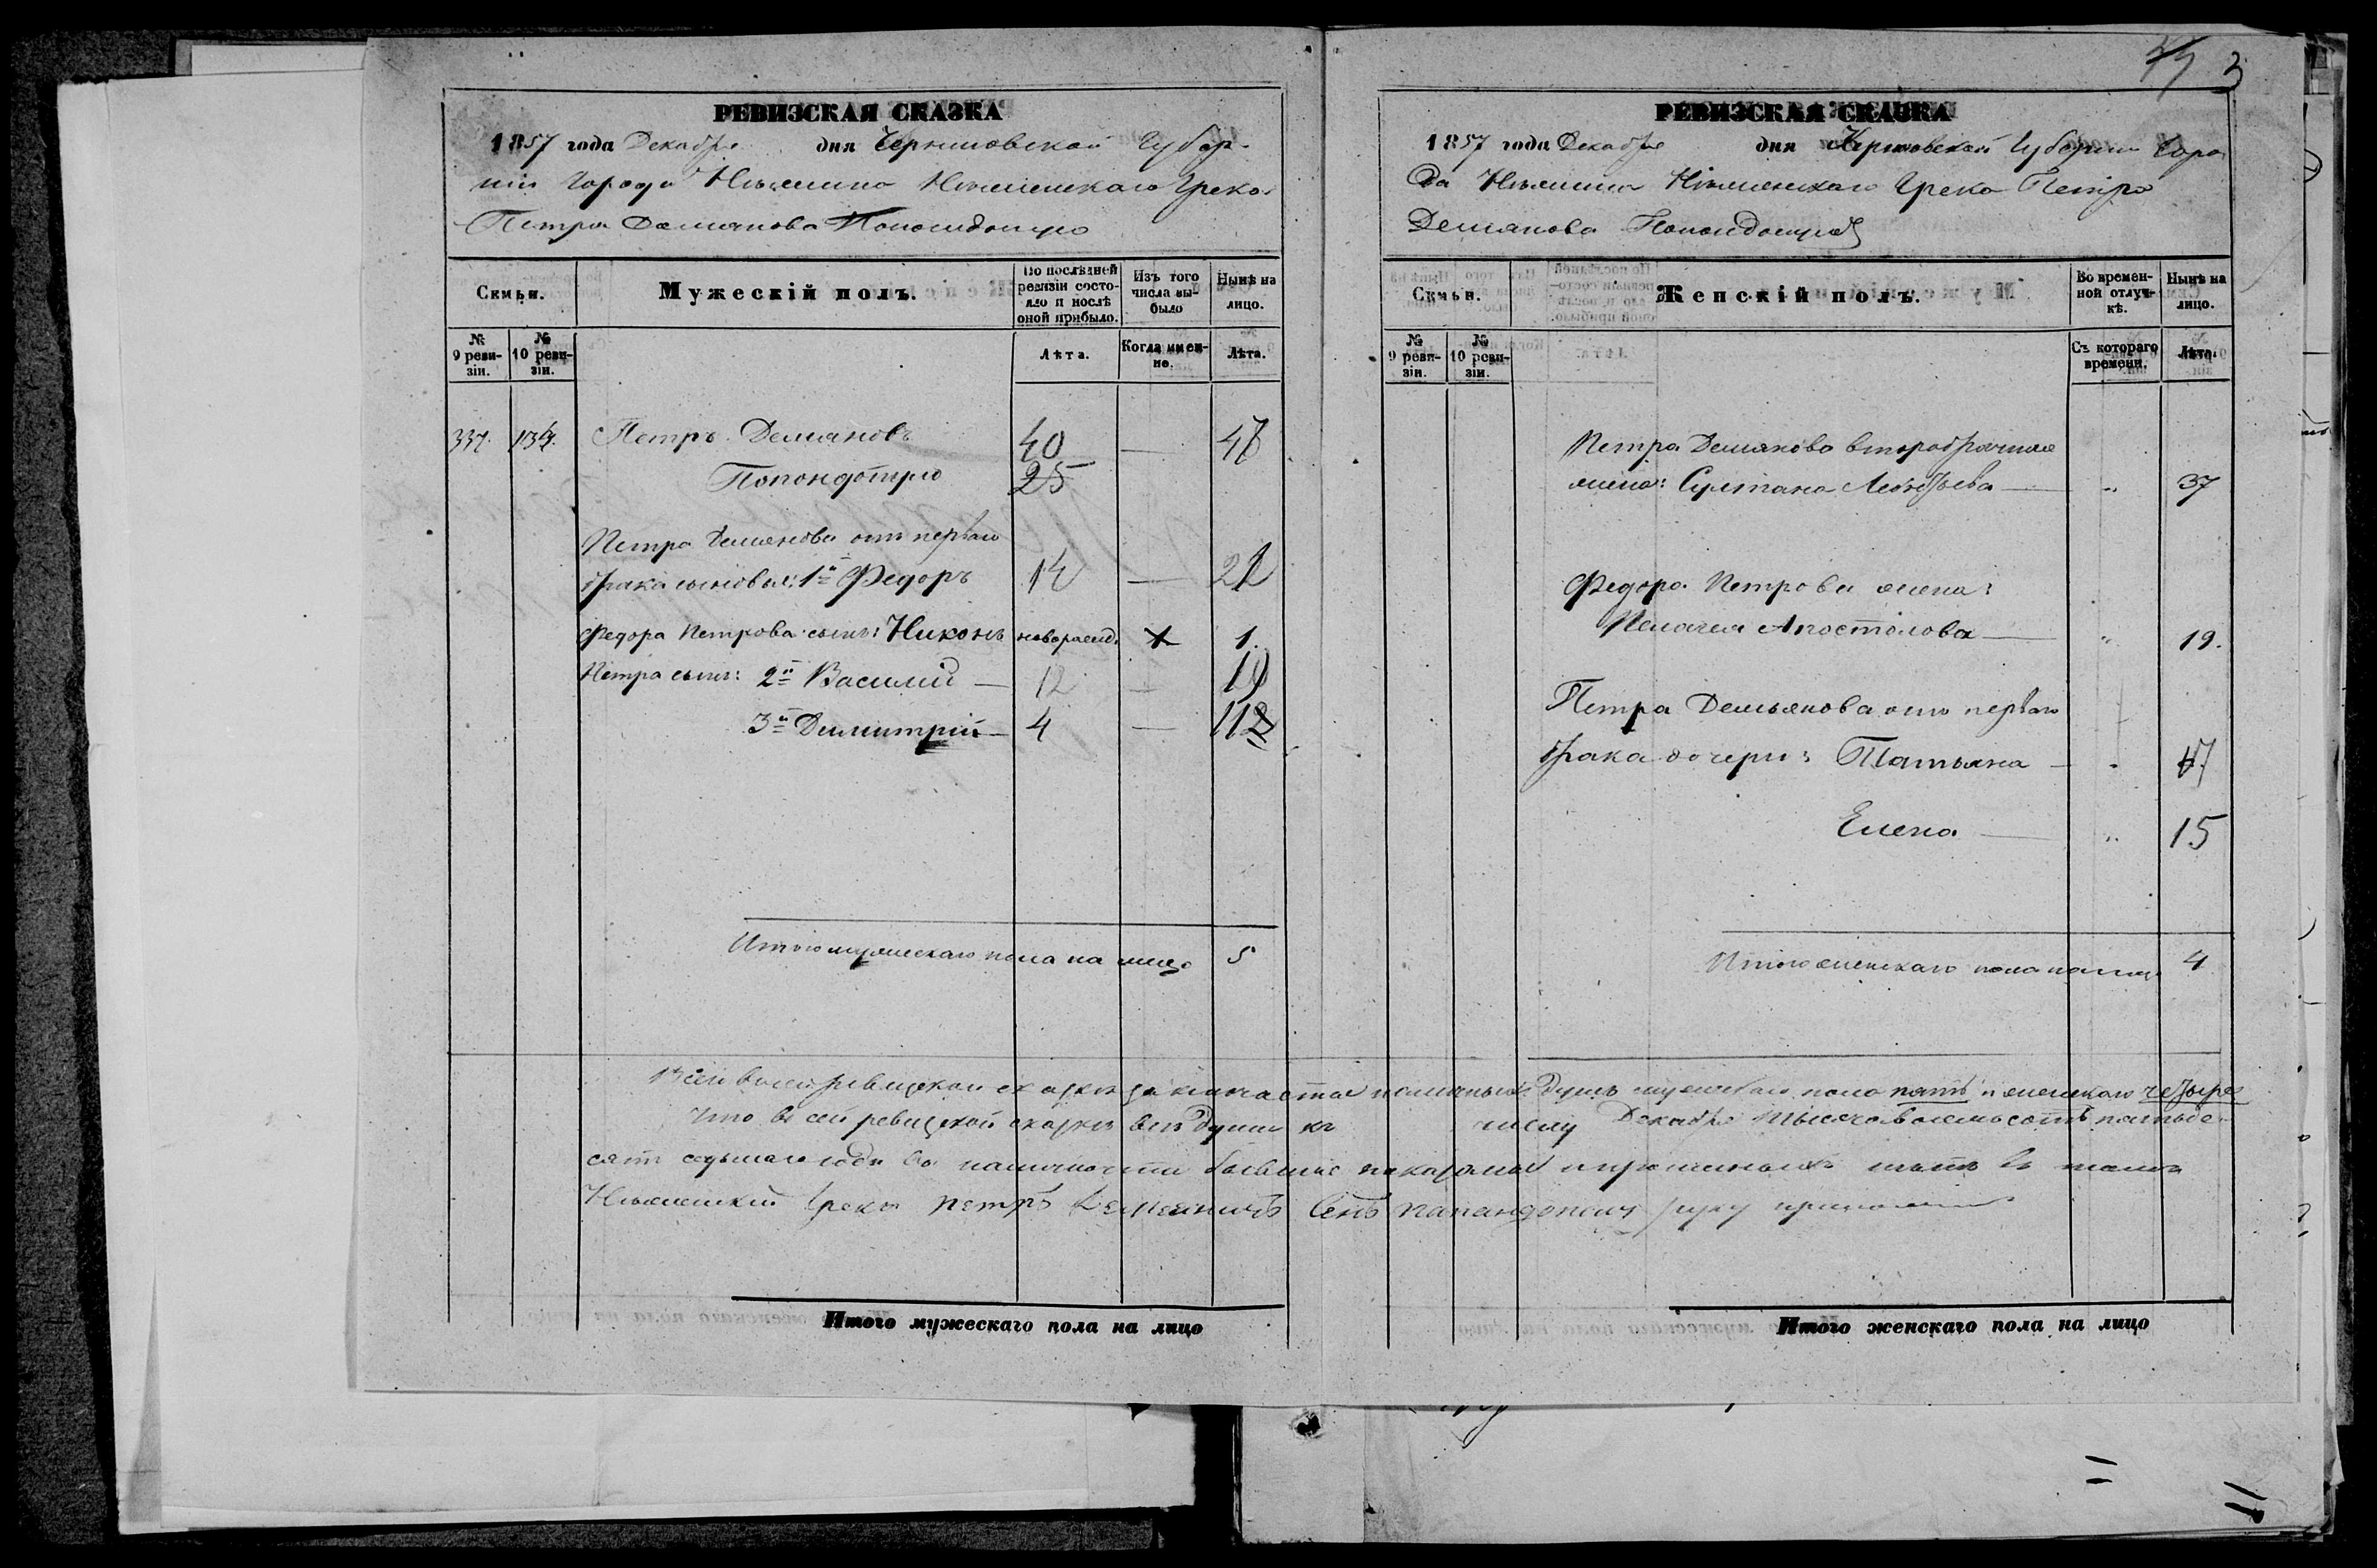 3
РЕВИЗСКАЯ СКАЗКА
1857 года Декабря дня Черниговской Губер-
ніи Города Нѣжина Нѣжинскаго Грека
Петра Демьянова Попондопуло
Семьи.
Мужескій полъ.
По послѣдней ревизіи состояло и послѣ оной прибыло.
Изъ того числа выбыло
Нынѣ на лицо.
№ 9 ревизіи.
№ 10 ревизіи.
Лѣта.
Когда именно.
Лѣта.
337. 134. Петръ Демьяновъ 40 — 47
Попондопуло 25
Петра Демьянова отъ перваго
брака сыновья: 1й Федоръ 14 — 22
Федора Петрова сынъ: Никонъ новорожд. 1.
Петра сынъ: 2й Василій — 12 — 19
3й Димитрій — 4 — 11
Итого мужескаго пола на лицо 5
РЕВИЗСКАЯ СКАЗКА
1857 года Декабря дня Черниговской Губерніи Горо
да Нѣжина Нѣжинскаго Грека Петра
Демьянова Попондопуло
Семьи.
Женскій полъ.
Во временной отлучкѣ.
Нынѣ на лицо.
№ 9 ревизіи.
№ 10 ревизіи.
Съ котораго времени.
Лѣта.
Петра Демьянова второбрачная
жена: Султана Леонтьева — " 37
Федора Петрова жена:
Пелагея Апостолова — " 19.
Петра Демьянова отъ перваго
брака дочери: Татьяна — " 17
Елена — " 15
Итого женскаго пола на лицо 4
ревизской сказке заключается наличныхъ душъ мужескаго пола пять и женскаго четыре
Что в сей ревизской сказке всѣ души къ числу Декабря тысяча восемьсотъ пятьде-
сятъ седьмаго года въ наличности бывшіе показаны и прописныхъ нѣтъ въ томъ
Нѣжинскій Грекъ петръ Демьяничъ Сынъ папандопулу руку приложилъ
Итого мужескаго пола на лицо
Итого женскаго пола на лицо